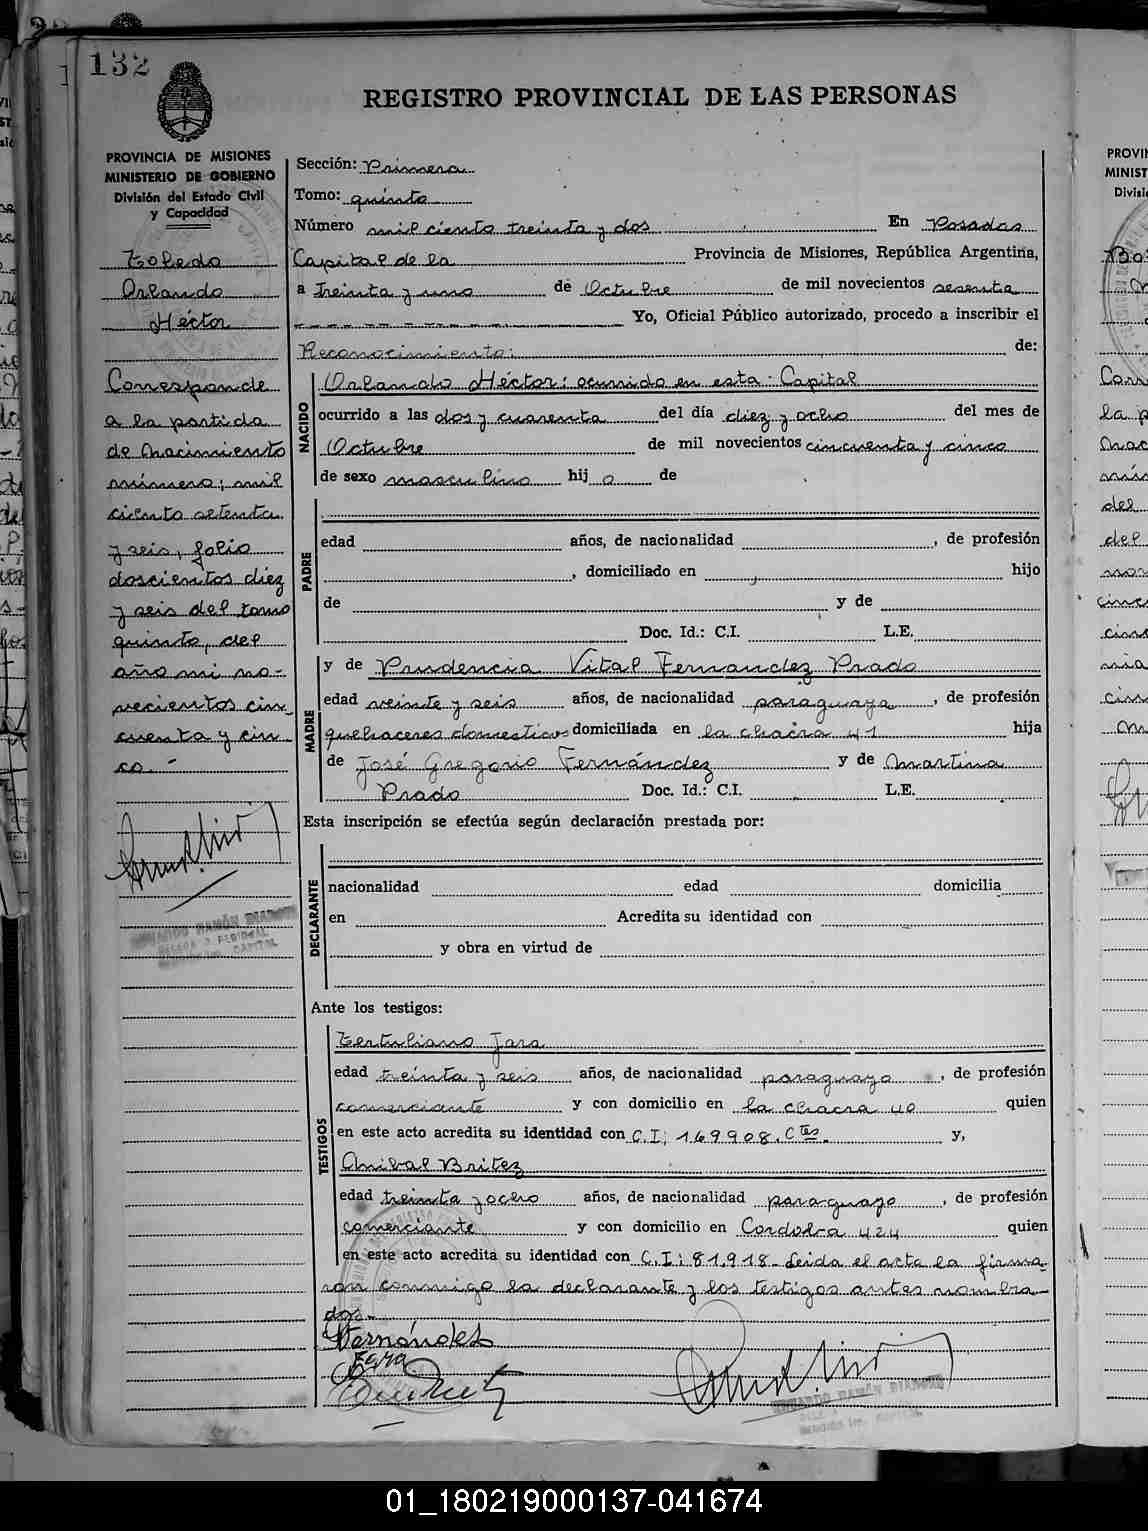 132
REGISTRO PROVINCIAL DE LAS PERSONAS
PROVINCIA DE MISIONES
MINISTERIO DE GOBIERNO
División del Estado Civil
y Capacidad
Toledo
Orlando
Héctor
Corresponde
a la partida
de Nacimiento
número; mil
ciento setenta
y seis, folio
doscientos diez
y seis del tomo
quinto, del
año mi no-
vecientos cin-
cuenta y cin
co.-
Sección: Primera
Tomo: quinto
Número mil ciento treinta y dos En Posadas
Capital de la Provincia de Misiones, República Argentina,
a treinta y uno de Octubre de mil novecientos sesenta
Yo, Oficial Público autorizado, procedo a inscribir el
Reconocimiento: de:
NACIDO
Orlando Héctor: ocurrido en esta Capital
ocurrido a las dos y cuarenta del día diez y ocho del mes de
Octubre de mil novecientos cincuenta y cinco
de sexo masculino hij o de
PADRE
edad años, de nacionalidad , de profesión
, domiciliado en hijo
de y de
Doc. Id.: C.I. L.E.
MADRE
y de Prudencia Vital Fernandez Prado
edad veinte y seis años, de nacionalidad paraguaya, de profesión
quehaceres domesticos domiciliada en la chacra 41 hija
de José Gregorio Fernández y de Martina
Prado Doc. Id.: C.I. L.E.
Esta inscripción se efectúa según declaración prestada por:
DECLARANTE
nacionalidad edad domicilia
en Acredita su identidad con
y obra en virtud de
Ante los testigos:
TESTIGOS
Tertuliano Jara
edad treinta y seis años, de nacionalidad paraguayo, de profesión
comerciante y con domicilio en la chacra 40 quien
en este acto acredita su identidad con C.I; 169908. Ctes. y,
Anibal Britez
edad treinta y ocho años, de nacionalidad paraguayo, de profesión
comerciante y con domicilio en Cordodra 424 quien
en este acto acredita su identidad con C.I: 81.918. Leida el acta la firma-
ron conmigo la declarante y los testigos antes nombra-
dos.-
Fernándes
Jara
PROVIN
MINIST
01_180219000137-041674